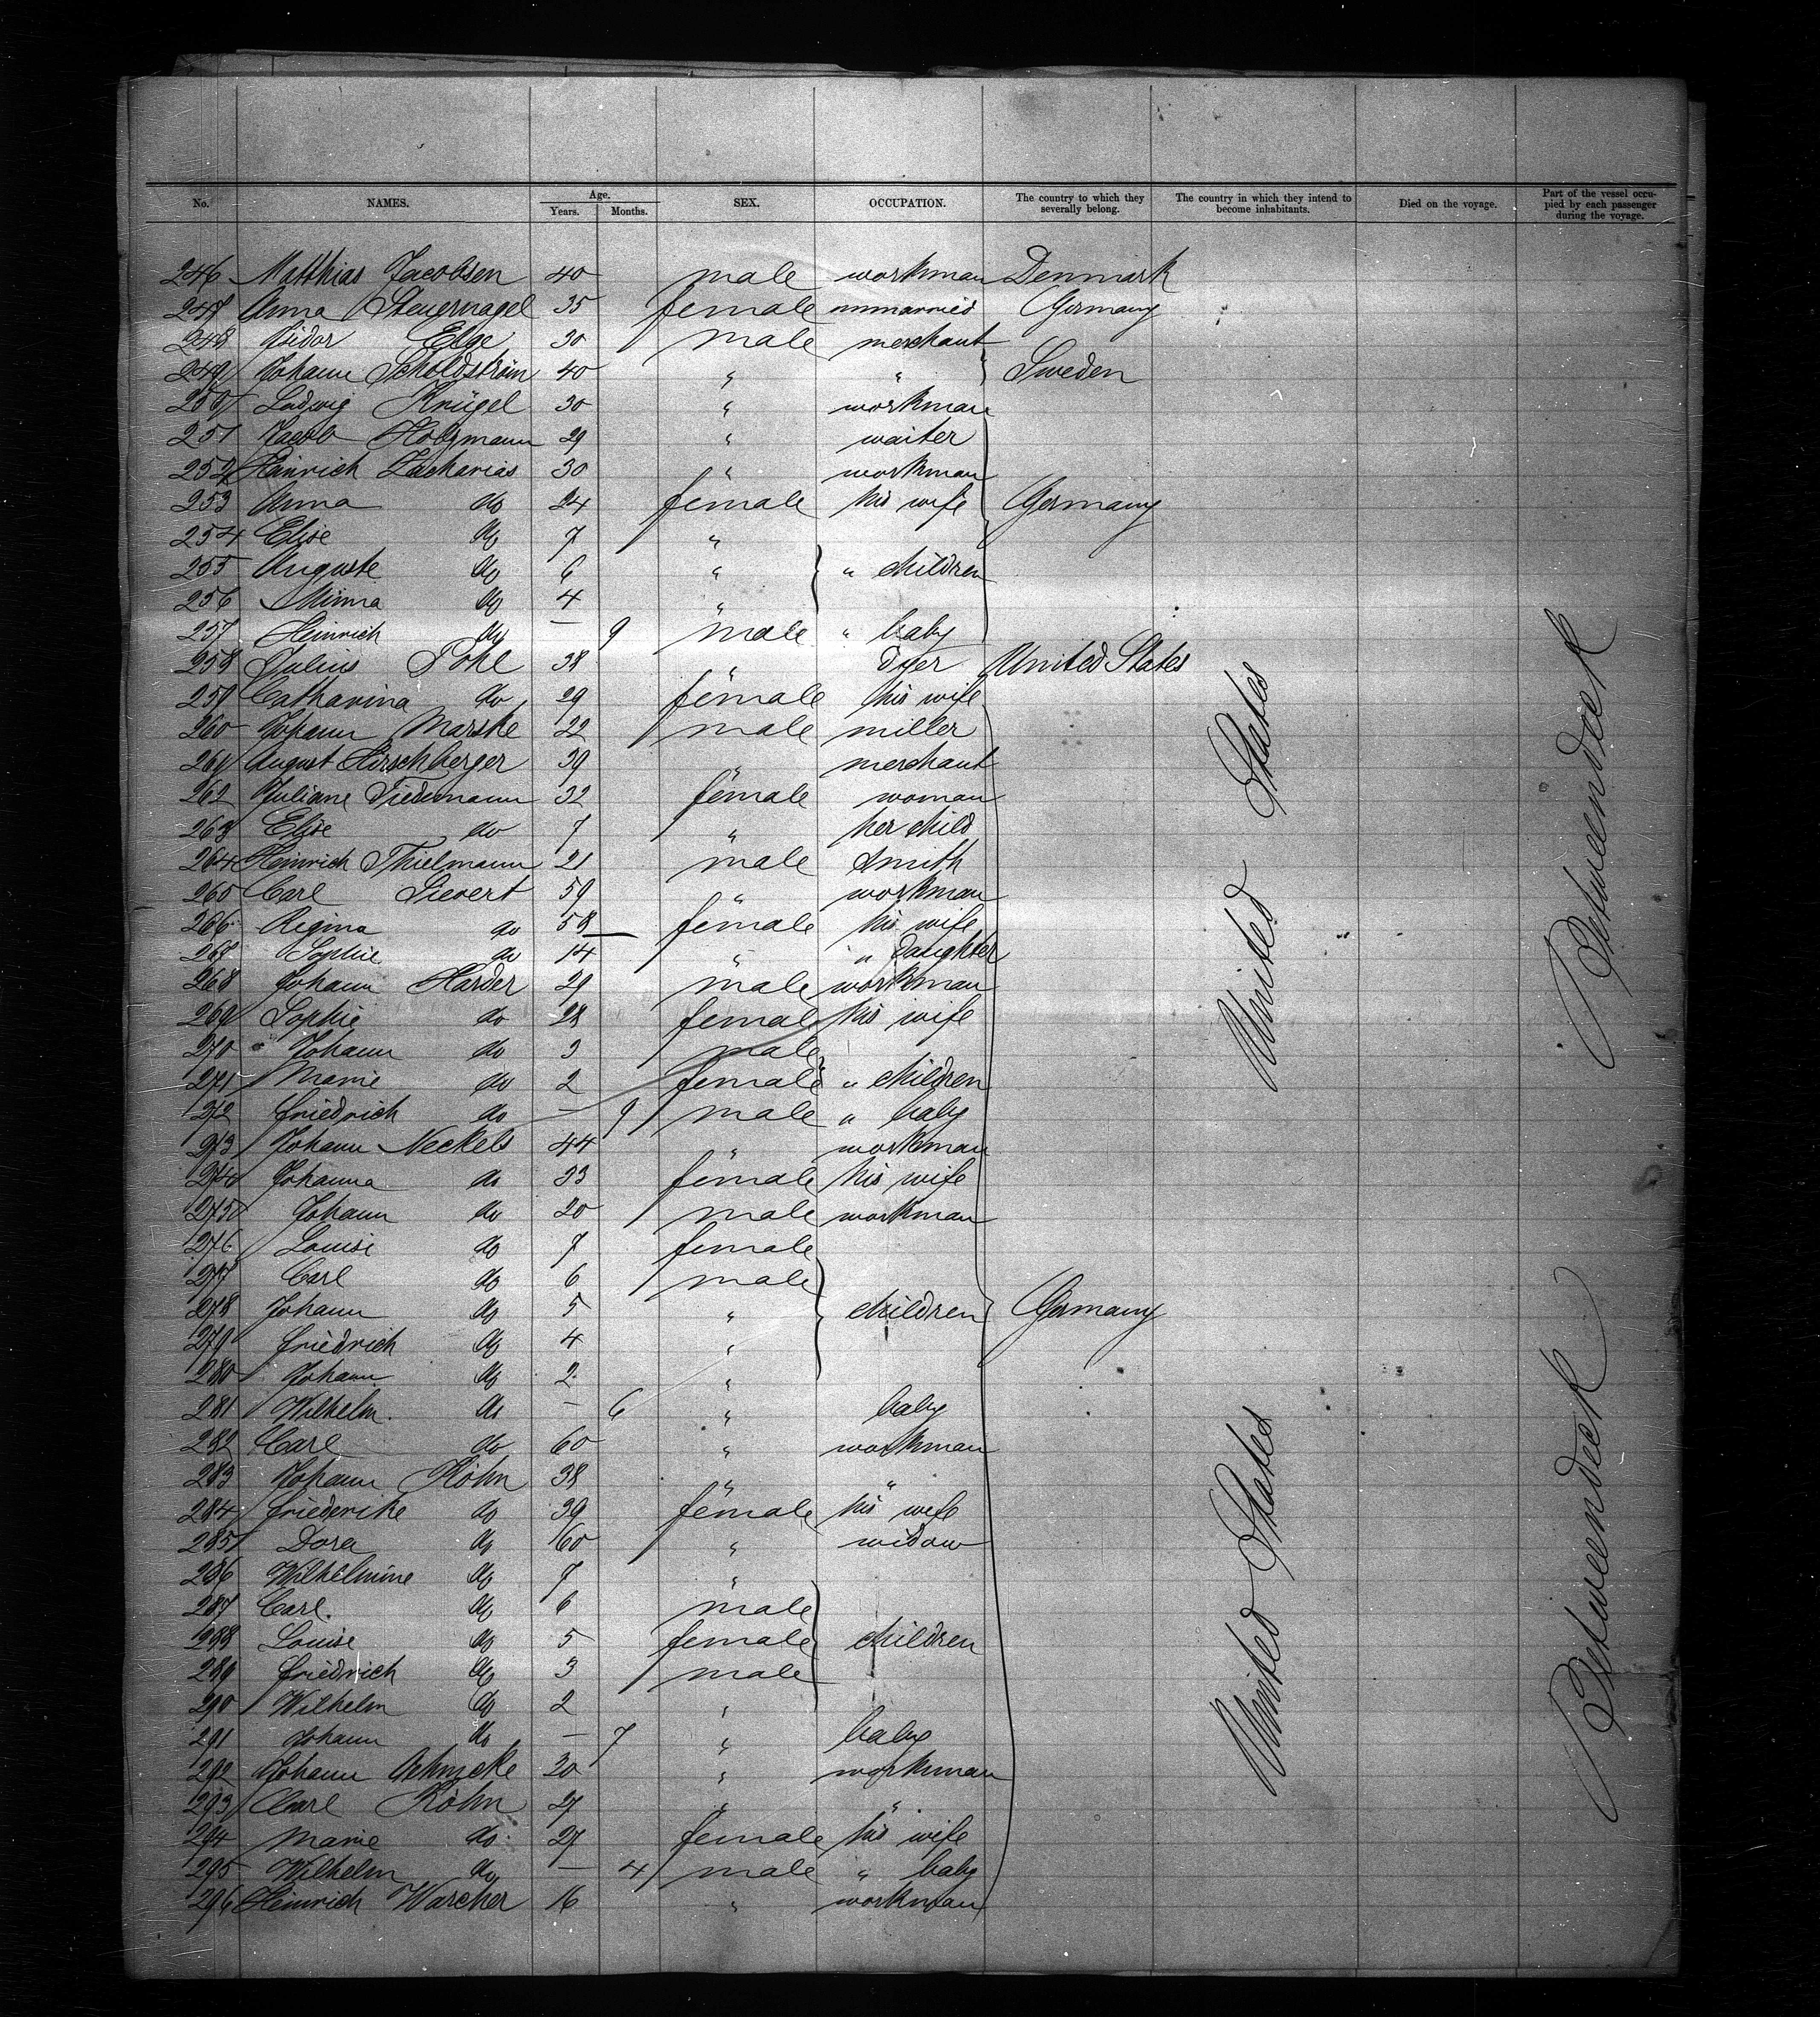 No. NAMES. Age. Years. Months. SEX. OCCUPATION. The country to which they severally belong. The country in which they intend to become inhabitants. Died on the voyage. Part of the vessel occupied by each passenger during the voyage.
246 Matthias Jacobsen 40 male workman Denmark
247 Anna Steuernagel 35 female unmarried Germany
248 Isidor Elge 30 male merchant
249 Johann Scholdström 40 " " Sweden
250 Ludwig Krügel 30 " workman
251 Jacob Holzmann 29 " waiter
252 Heinrich Zacharias 30 " workman
253 Anna do 24 female his wife Germany
254 Elise do 7 "
255 Auguste do 6 " " children
256 Minna do 4 "
257 Heinrich do — 9 male " baby
258 Julius Pohl 38 " dyer United States
259 Catharina do 29 female his wife
260 Johann Marske 22 male miller
261 August Hirschberger 39 " merchant
262 Juliane Tiedemann 32 female woman
263 Elise do 7 " her child
264 Heinrich Thielmann 21 male smith
265 Carl Sievert 59 " workman
266 Regina do 58 female his wife
267 Sophie do 14 " " daughter
268 Johann Harder 29 male workman
269 Sophie do 28 female his wife
270 Johann do 3 male
271 Marie do 2 female " children
272 Friedrich do — 9 male " baby
273 Johann Neckels 44 " workman
274 Johanna do 33 female his wife
275 Johann do 20 male workman
276 Louise do 7 female
277 Carl do 6 male
278 Johann do 5 " children Germany
279 Friedrich do 4 "
280 Johann do 2 "
281 Wilhelm do — 6 " baby
282 Carl do 60 " workman
283 Johann Köhn 38 " "
284 Friederike do 39 female his wife
285 Dora do 60 " widow
286 Wilhelmine do 7 "
287 Carl do 6 male
288 Louise do 5 female children
289 Friedrich do 3 male
290 Wilhelm do 2 "
291 Johann do — 7 " baby
292 Johann 30 " workman
293 Carl Köhn 27 " "
294 Marie do 27 female his wife
295 Wilhelm do — 4 male " baby
296 Heinrich Warcher 16 " workman
United States
United States
Betweendeck
Betweendeck